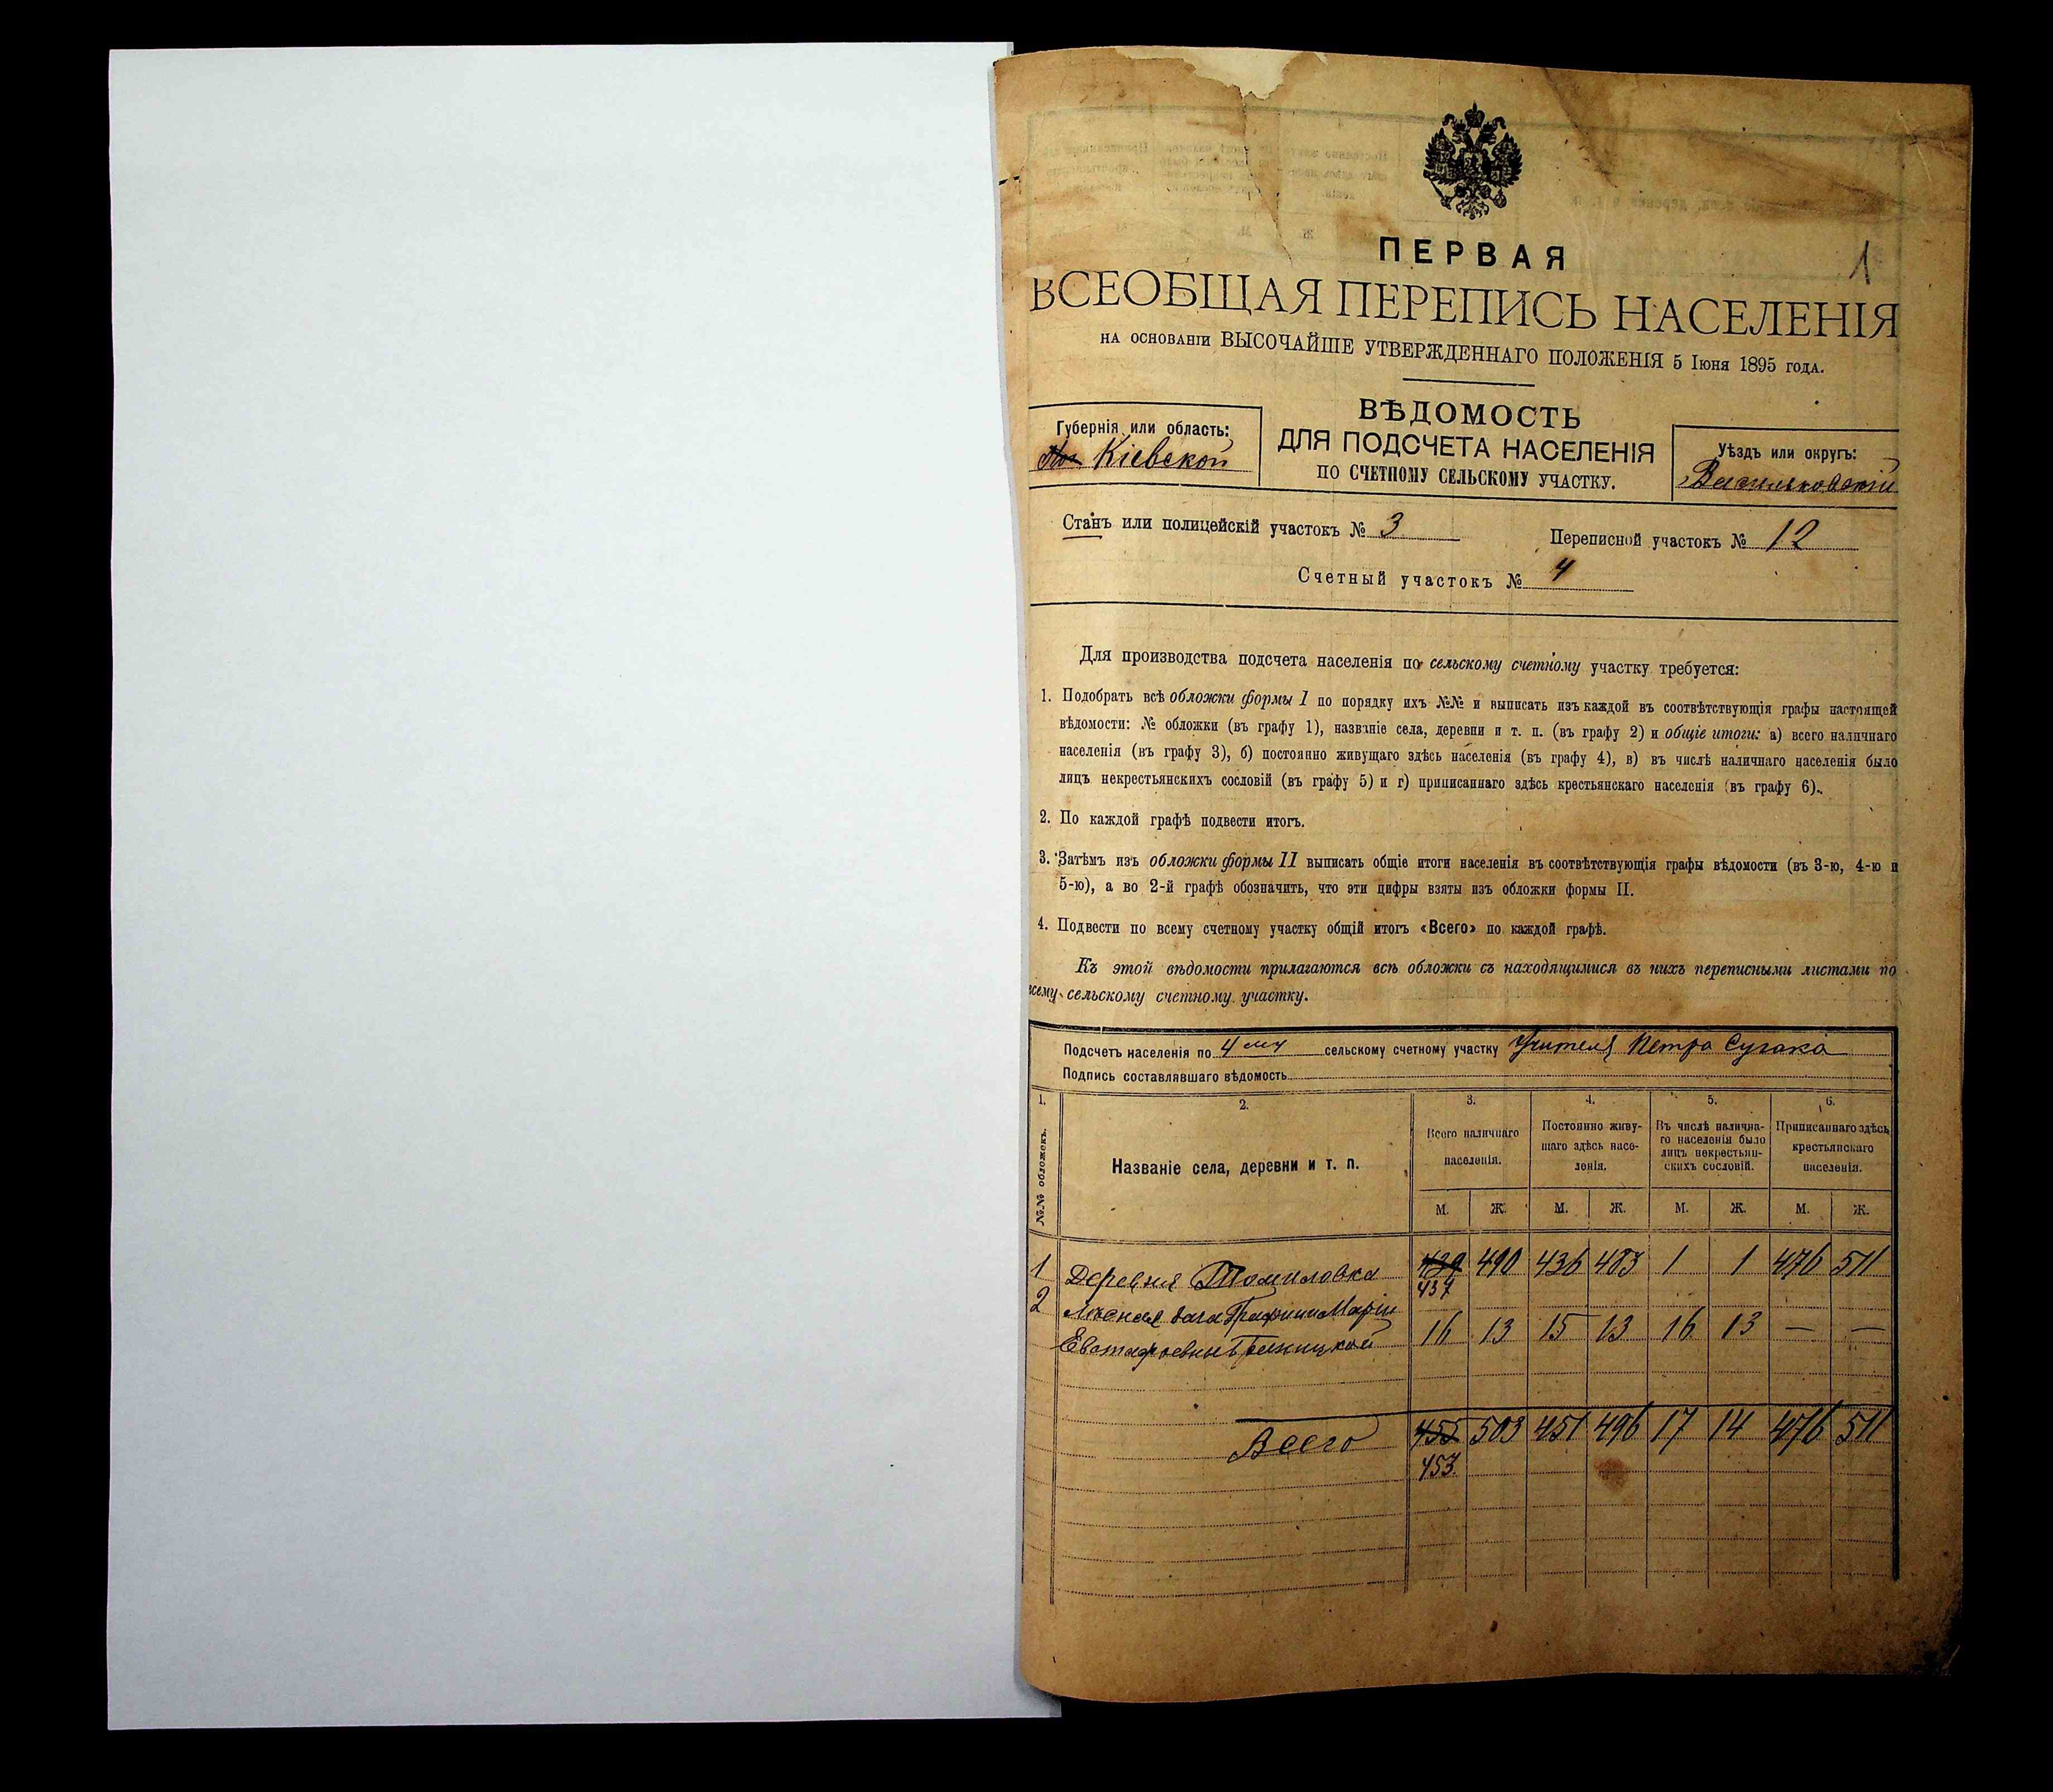 1
ПЕРВАЯ
ВСЕОБЩАЯ ПЕРЕПИСЬ НАСЕЛЕНІЯ
НА ОСНОВАНІИ ВЫСОЧАЙШЕ УТВЕРЖДЕННАГО ПОЛОЖЕНІЯ 5 Іюня 1895 ГОДА.
ВѢДОМОСТЬ
ДЛЯ ПОДСЧЕТА НАСЕЛЕНІЯ
ПО СЧЕТНОМУ СЕЛЬСКОМУ УЧАСТКУ.
Губернія или область:
Кіевской
Уѣздъ или округъ:
Васильковскій
Станъ или полицейскій участокъ № 3
Переписной участокъ № 12
Счетный участокъ № 4
Для производства подсчета населенія по сельскому счетному участку требуется:
1. Подобрать всѣ обложки формы I по порядку ихъ №№ и выписать изъ каждой въ соотвѣтствующія графы настоящей
вѣдомости: № обложки (въ графу 1), названіе села, деревни и т. п. (въ графу 2) и общіе итоги: а) всего наличнаго
населенія (въ графу 3), б) постоянно живущаго здѣсь населенія (въ графу 4), в) въ числѣ наличнаго населенія было
лицъ некрестьянскихъ сословій (въ графу 5) и г) приписаннаго здѣсь крестьянскаго населенія (въ графу 6).
2. По каждой графѣ подвести итогъ.
3. Затѣмъ изъ обложки формы II выписать общіе итоги населенія въ соотвѣтствующія графы вѣдомости (въ 3-ю, 4-ю и
5-ю), а во 2-й графѣ обозначить, что эти цифры взяты изъ обложки формы II.
4. Подвести по всему счетному участку общій итогъ «Всего» по каждой графѣ.
Къ этой вѣдомости прилагаются всѣ обложки съ находящимися въ нихъ переписными листами по
всему сельскому счетному участку.
Подсчетъ населенія по 4му сельскому счетному участку Учителя Петра Сугака
Подпись составлявшаго вѣдомость
1. 2. 3. 4. 5. 6.
№№ обложекъ.
Названіе села, деревни и т. п.
Всего наличнаго
населенія.
Постоянно живу-
щаго здѣсь насе-
ленія.
Въ числѣ налична-
го населенія было
лицъ некрестьян-
скихъ сословій.
Приписаннаго здѣсь
крестьянскаго
населенія.
М. Ж. М. Ж. М. Ж. М. Ж.
1 Деревня Томиловка 439 490 436 483 1 1 476 511
437
2 Лѣсная дача Графини Маріи
Евстафьевны Браницкой 16 13 15 13 16 13 — —
Всего 455 503 451 496 17 14 476 511
453